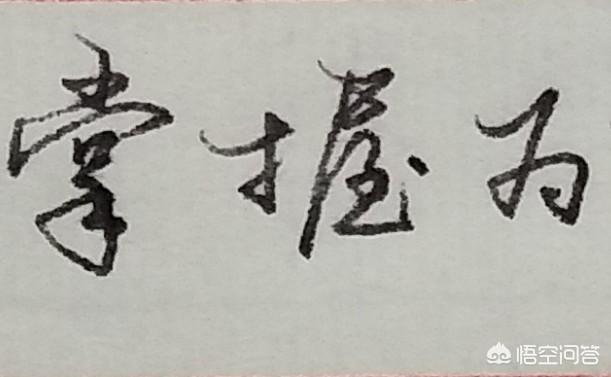 掌握为
悟空问答